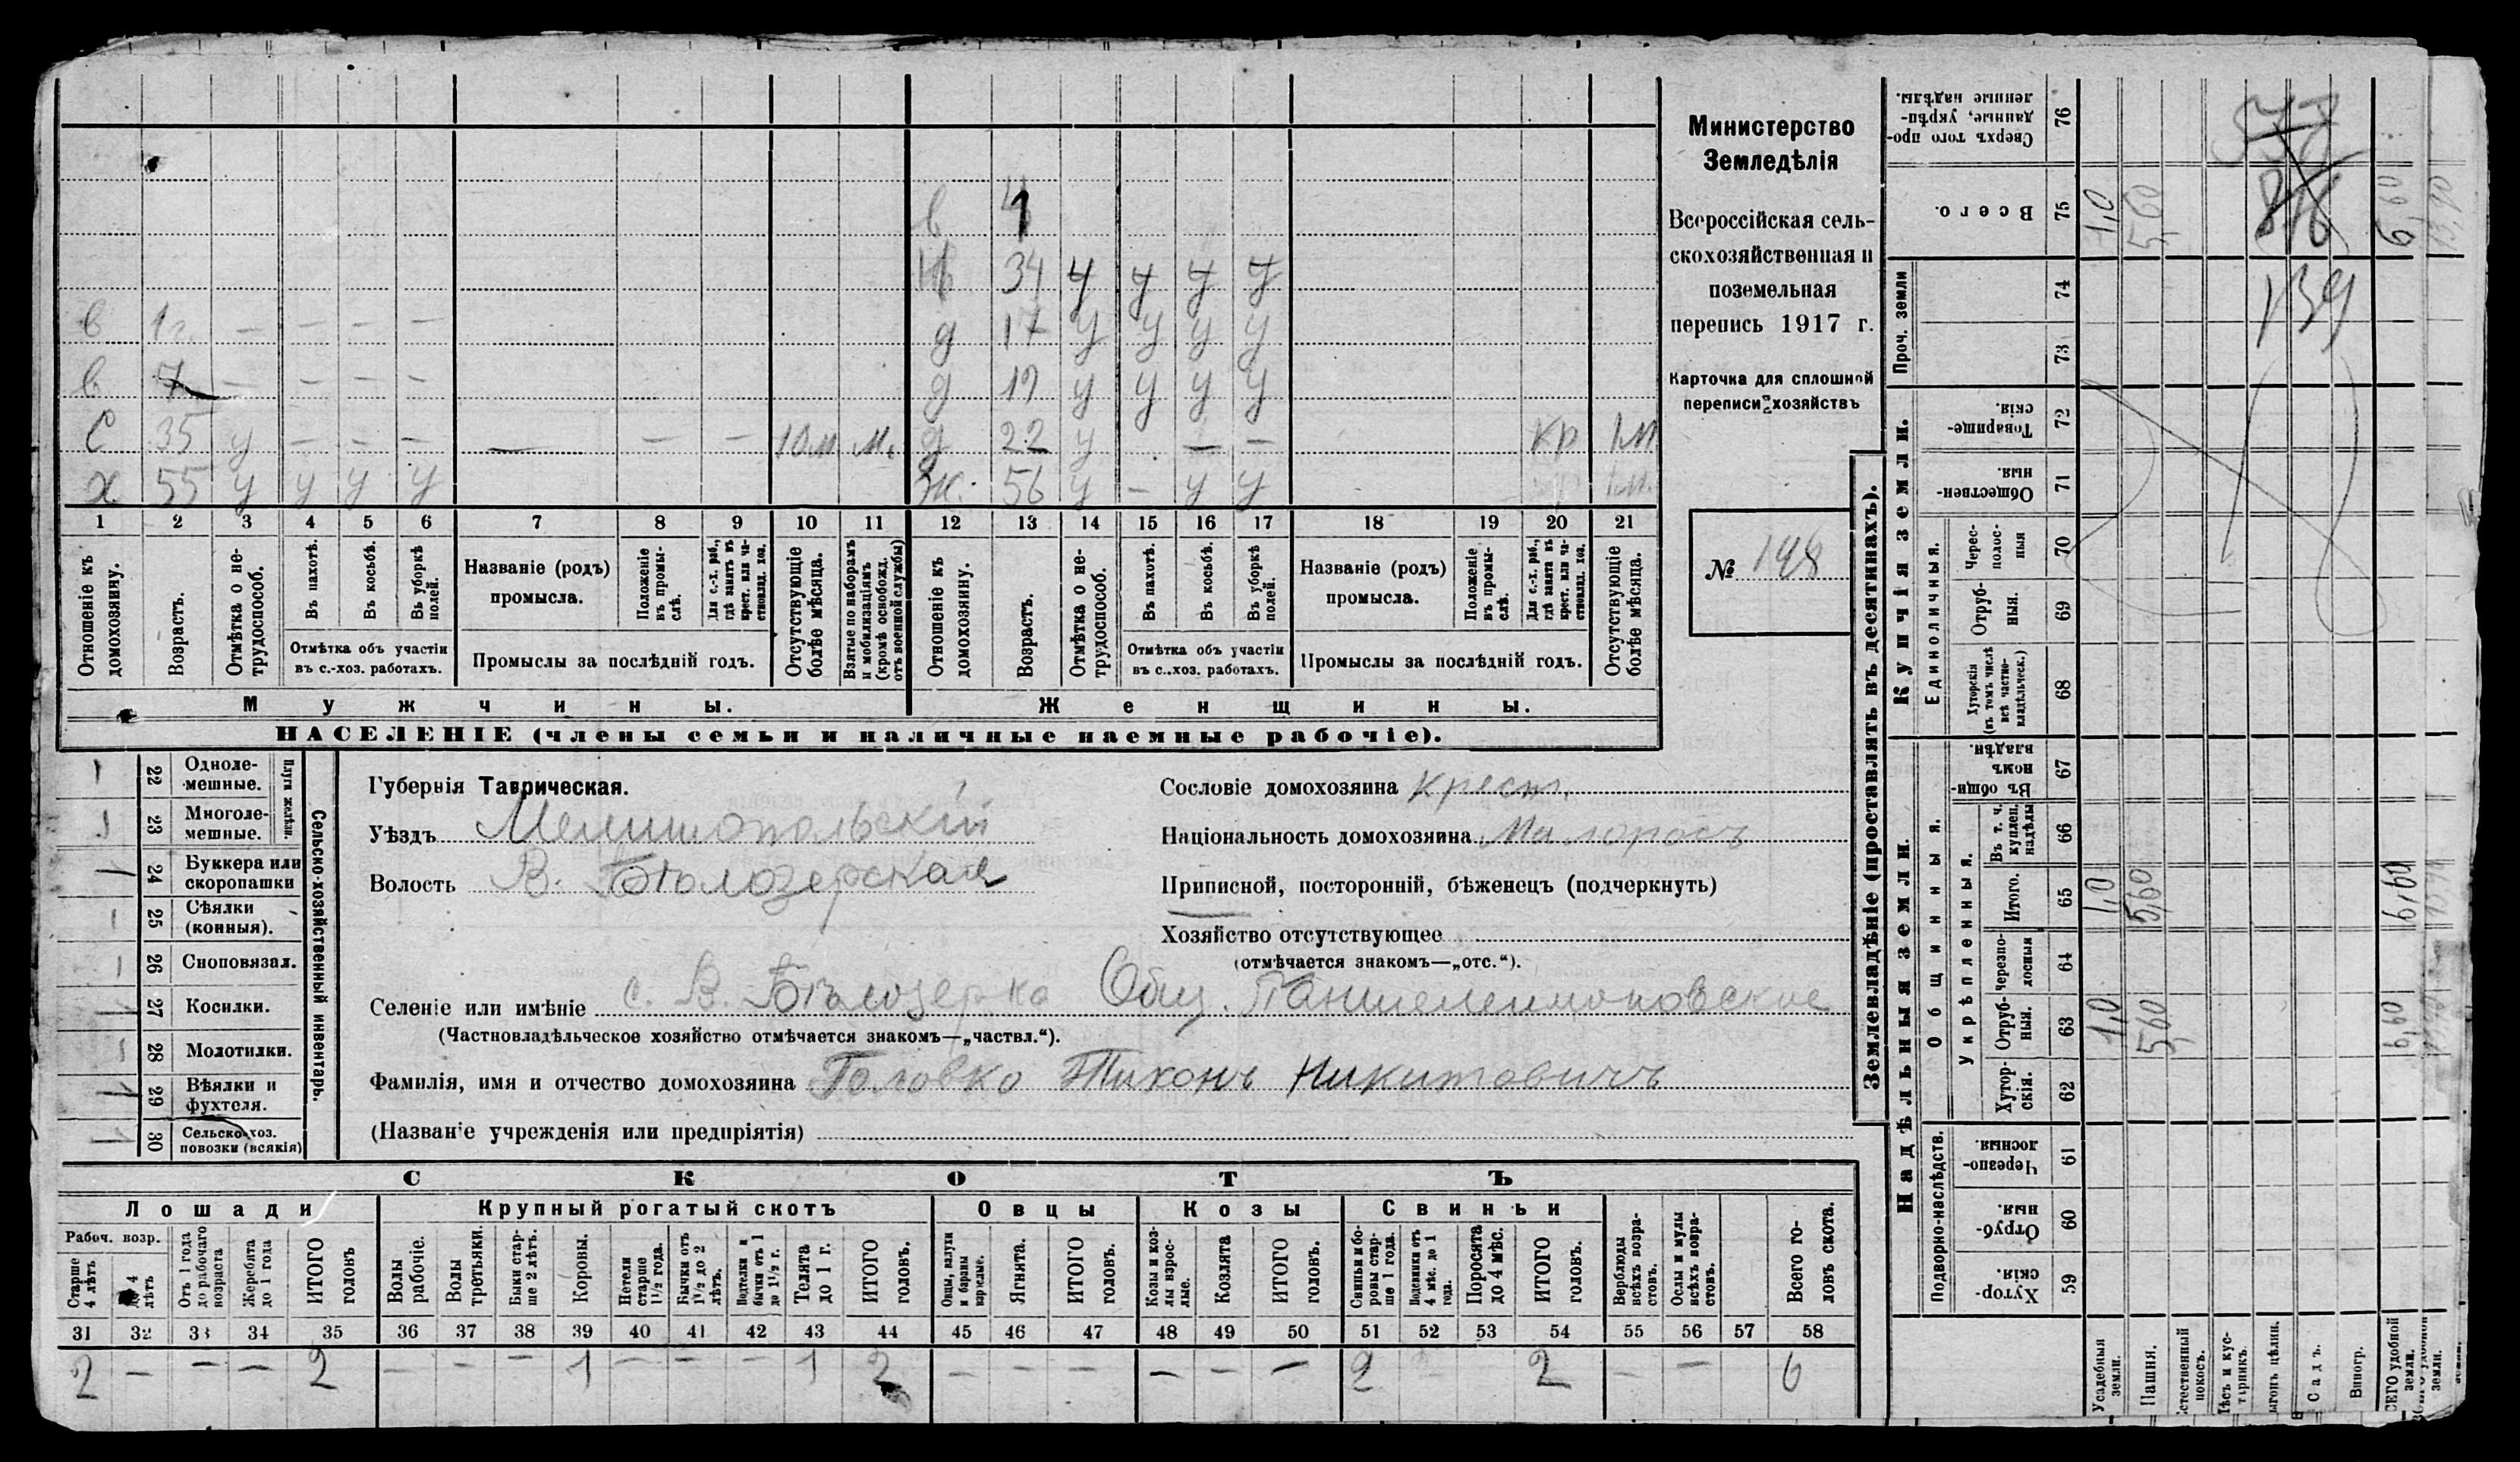 Министерство
Земледѣлія
Всероссійская сель-
скохозяйственная и
поземельная
перепись 1917 г.
Карточка для сплошной
переписи хозяйствъ
№ 148
в 1
34 у у у у
в 1 г. — — — — д 17 у у у у
в 7 — — — — д 19 у у у у
с 35 у — — — — — — 10 м м. д 22 у — — кр 1 м
х 55 у у у у ж. 56 у — у у 1 м.
1 2 3 4 5 6 7 8 9 10 11 12 13 14 15 16 17 18 19 20 21
Отношеніе къ домохозяину.
Возрастъ.
Отмѣтка о не-трудоспособ.
Въ пахотѣ.
Въ косьбѣ.
Въ уборкѣ полей.
Отмѣтка объ участіи въ с.-хоз. работахъ.
Названіе (родъ) промысла.
Положеніе въ промы-слѣ.
Для с.-х. раб., гдѣ занятъ въ крест. или ча-стновлад. хоз.
Промыслы за послѣдній годъ.
Отсутствующіе болѣе мѣсяца.
Взятые по наборамъ и мобилизаціямъ (кромѣ освобожд. отъ военной службы)
Отношеніе къ домохозяину.
Возрастъ.
Отмѣтка о не-трудоспособ.
Въ пахотѣ.
Въ косьбѣ.
Въ уборкѣ полей.
Отмѣтка объ участіи въ с.-хоз. работахъ.
Названіе (родъ) промысла.
Положеніе въ промы-слѣ.
Для с.-х. раб., гдѣ занята въ крест. или ча-стновлад. хоз.
Промыслы за послѣдній годъ.
Отсутствующіе болѣе мѣсяца.
Мужчины. Женщины.
НАСЕЛЕНІЕ (члены семьи и наличные наемные рабочіе).
Сельско-хозяйственный инвентарь.
Плуги желѣзн.
1 22 Одноле-мешные.
1 23 Многоле-мешные.
1 24 Буккера или скоропашки
1 25 Сѣялки (конныя).
1 26 Сноповязал.
1 27 Косилки.
1 28 Молотилки.
1 29 Вѣялки и фухтеля.
1 30 Сельско-хоз. повозки (всякія)
Губернія Таврическая.
Уѣздъ Мелитопольскій
Волость В. Бѣлозерская
Сословіе домохозяина крест.
Національность домохозяина Малоросъ
Приписной, посторонній, бѣженецъ (подчеркнуть)
Хозяйство отсутствующее
(отмѣчается знакомъ—„отс.“).
Селеніе или имѣніе с. В. Бѣлозерка Общ. Пантелеимоновское
(Частновладѣльческое хозяйство отмѣчается знакомъ—„частвл.“).
Фамилія, имя и отчество домохозяина Головко Тихонъ Никитовичъ
(Названіе учрежденія или предпріятія)
СКОТЪ
Лошади Крупный рогатый скотъ Овцы Козы Свиньи
Рабоч. возр.
Старше 4 лѣтъ
до 4 лѣтъ
Отъ 1 года до рабочаго возраста
Жеребята до 1 года
ИТОГО головъ
Волы рабочіе.
Волы третьяки.
Быки стар-ше 2 лѣтъ.
Коровы.
Нетели старше 1½ года.
Бычки отъ 1½ до 2 лѣтъ.
Подтелки и бычки отъ 1 до 1½ г.
Телята до 1 г.
ИТОГО головъ.
Овцы, валухи и бараны взрослые.
Ягнята.
ИТОГО головъ.
Козы и коз-лы взрос-лые.
Козлята
ИТОГО головъ.
Свиньи и бо-ровы стар-ше 1 года.
Подсвинки отъ 4 мѣс. до 1 года.
Поросята до 4 мѣс.
ИТОГО головъ.
Верблюды всѣхъ возра-стовъ.
Ослы и мулы всѣхъ возра-стовъ.
Всего го-ловъ скота.
31 32 33 34 35 36 37 38 39 40 41 42 43 44 45 46 47 48 49 50 51 52 53 54 55 56 57 58
2 — — — 2 — — — 1 — — — 1 2 — — — — — — 2 — 2 — — 6
Землевладѣніе (проставлять въ десятинахъ).
Надѣльныя земли. Купчія земли. Проч. земли
Подворно-наслѣдств.
Общинныя.
Укрѣпленныя.
Единоличныя.
Хутор-скія. 59
Отруб-ныя. 60
Черезпо-лосныя. 61
Хутор-скія. 62
Отруб-ныя. 63
Черезпо-лосныя 64
Итого. 65
Въ т. ч. куплен. надѣлы 66
Въ общи-номъ владѣн. 67
Хуторскія (въ томъ числѣ всѣ частно-владѣльческ.) 68
Отруб-ныя. 69
Черес-полос-ныя 70
Обществен-ныя. 71
Товарище-скія. 72
73
74
Всего. 75
Сверхъ того про-данные, укрѣп-ленные надѣлы. 76
Усадебныя земли. 1,0 1,0 1,0
Пашня. 5,60 5,60 5,60
Естественный покосъ.
Лѣсъ и кус-тарникъ.
Выгонъ цѣлин.
Садъ.
Виногр.
ВСЕГО удобной земли. 6,60 6,60 6,60
139
816